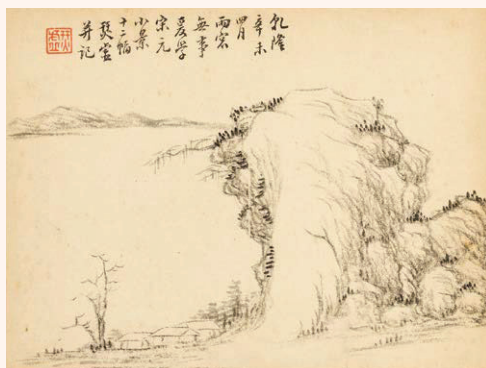 乾隆
辛未
四月
雨窗
無事
爰學
宋元
小景
十二幅
并記